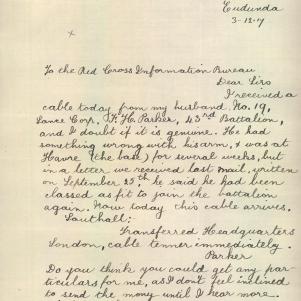 Eudunda
3-12-7
x
To the Red Cross Information Bureau
Dear Sirs
I received a
cable today from my husband No. 19,
Lance Corp, F. H. Parker, 43rd Battalion,
and I doubt if it is genuine. He had
something wrong with his arm, & was at
Havre (the base) for several weeks, but
in a letter we received last mail, written
on September 25th he said he had been
classed as fit to join the battalion
again. Now today this cable arrives.
Southall:
Transferred Headquarters
London, cable tenner immediately.
Parker
Do you think you could get any par-
ticulars for me, as I don't feel inclined
to send the mony until I hear more.